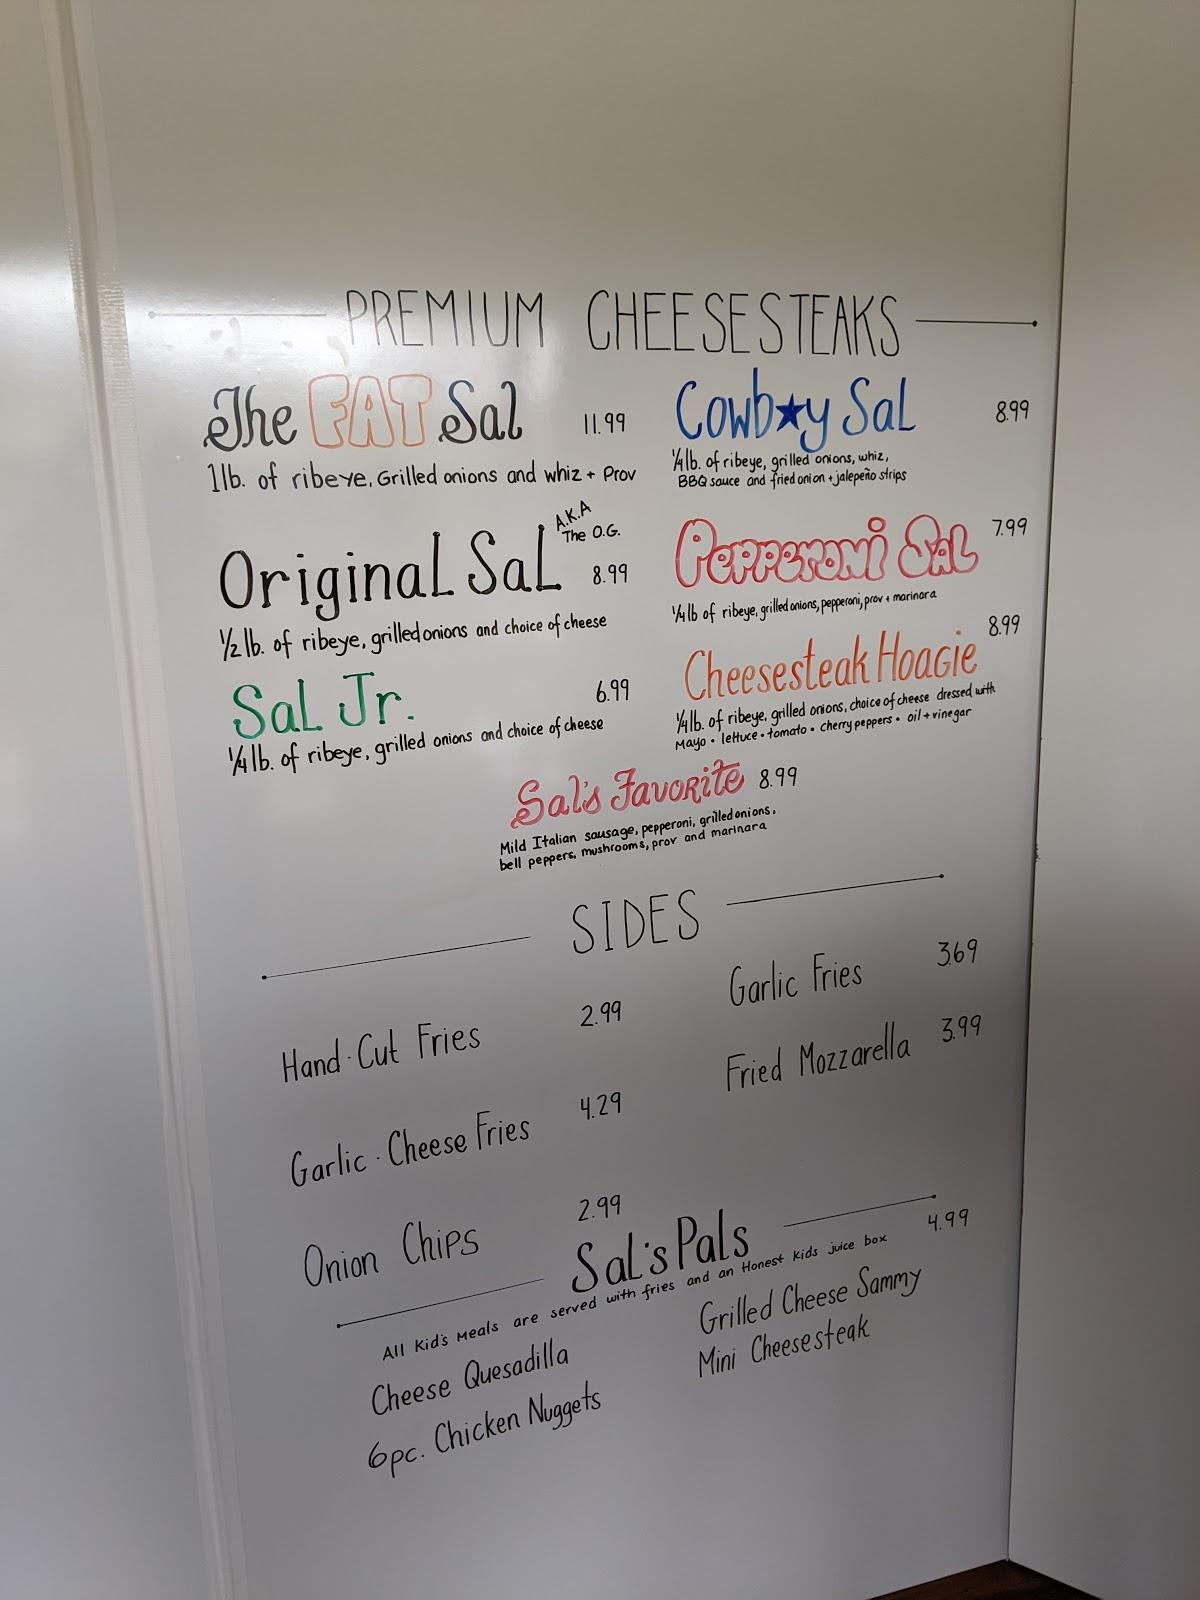 PREMIUM CHEESESTEAKS
The FAT Sal 11.99
1lb. of ribeye, Grilled onions and whiz + Prov
Original Sal A.K.A The O.G. 8.99
1/2 lb. of ribeye, grilled onions and choice of cheese
Sal Jr. 6.99
1/4 lb. of ribeye, grilled onions and choice of cheese
Cowb★y Sal 8.99
1/4 lb. of ribeye, grilled onions, whiz,
BBQ sauce and fried onion + jalepeño strips
Pepperoni Sal 7.99
1/4 lb of ribeye, grilled onions, pepperoni, prov + marinara
Cheesesteak Hoagie 8.99
1/4 lb. of ribeye, grilled onions, choice of cheese dressed with
Mayo • lettuce • tomato • cherry peppers • oil + vinegar
Sal's Favorite 8.99
Mild Italian sausage, pepperoni, grilled onions,
bell peppers, mushrooms, prov and marinara
SIDES
Hand-Cut Fries 2.99
Garlic-Cheese Fries 4.29
Onion Chips 2.99
Garlic Fries 3.69
Fried Mozzarella 3.99
Sal's Pals 4.99
All Kid's Meals are served with fries and an Honest Kids juice box
Cheese Quesadilla
6pc. Chicken Nuggets
Grilled Cheese Sammy
Mini Cheesesteak